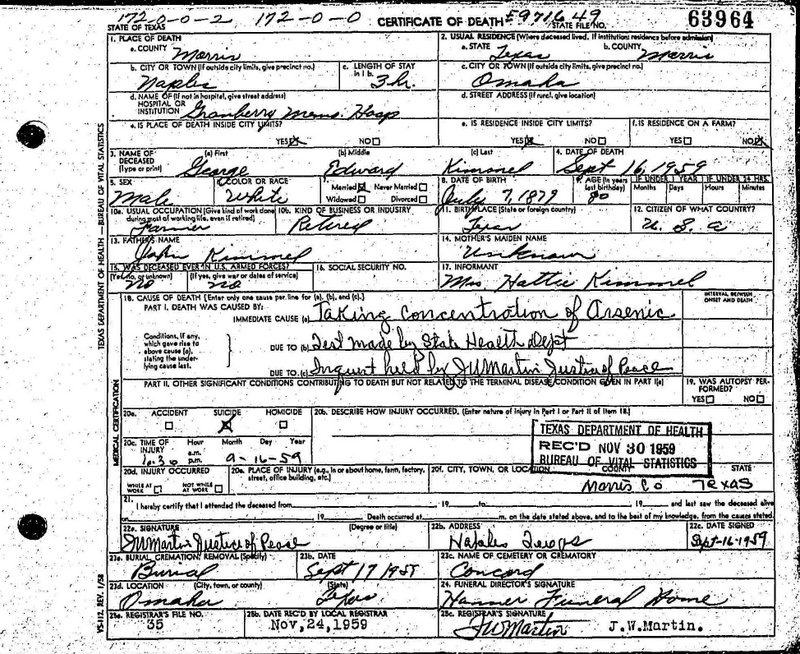 172-0-0-2 172-0-0 E971.6 49 63964
STATE OF TEXAS CERTIFICATE OF DEATH STATE FILE NO.
1. PLACE OF DEATH 2. USUAL RESIDENCE (Where deceased lived. If institution: residence before admission)
a. COUNTY Morris a. STATE Texas b. COUNTY Morris
b. CITY OR TOWN (If outside city limits, give precinct no.) c. LENGTH OF STAY in 1 b. c. CITY OR TOWN (If outside city limits, give precinct no.)
Naples 3 h. Omaha
d. NAME OF (If not in hospital, give street address) HOSPITAL OR INSTITUTION d. STREET ADDRESS (If rural, give location)
Granberry Mem. Hosp
e. IS PLACE OF DEATH INSIDE CITY LIMITS? e. IS RESIDENCE INSIDE CITY LIMITS? f. IS RESIDENCE ON A FARM?
YES NO YES NO YES NO
3. NAME OF DECEASED (Type or print) (a) First (b) Middle (c) Last 4. DATE OF DEATH
George Edward Kimmel Sept 16, 1959
5. SEX 6. COLOR OR RACE Married Never Married 8. DATE OF BIRTH 9. AGE (In years last birthday) IF UNDER 1 YEAR IF UNDER 24 HRS.
Male White Widowed Divorced July 7, 1879 80 Months Days Hours Minutes
10a. USUAL OCCUPATION (Give kind of work done during most of working life, even if retired) 10b. KIND OF BUSINESS OR INDUSTRY 11. BIRTHPLACE (State or foreign country) 12. CITIZEN OF WHAT COUNTRY?
Farmer Retired Texas U. S. A
13. FATHER'S NAME 14. MOTHER'S MAIDEN NAME
John Kimmel Unknown
15. WAS DECEASED EVER IN U.S. ARMED FORCES? 16. SOCIAL SECURITY NO. 17. INFORMANT
(Yes, no, or unknown) (If yes, give war or dates of service)
No no Mrs. Hattie Kimmel
18. CAUSE OF DEATH [Enter only one cause per line for (a), (b), and (c).] INTERVAL BETWEEN ONSET AND DEATH
PART I. DEATH WAS CAUSED BY:
IMMEDIATE CAUSE (a) Taking concentration of Arsenic
Conditions, if any, which gave rise to above cause (a), stating the underlying cause last.
DUE TO (b) Test made by State Health Dept
DUE TO (c) Inquest held by JW Martin Justice of Peace
PART II. OTHER SIGNIFICANT CONDITIONS CONTRIBUTING TO DEATH BUT NOT RELATED TO THE TERMINAL DISEASE CONDITION GIVEN IN PART I(a) 19. WAS AUTOPSY PERFORMED?
YES NO
20a. ACCIDENT SUICIDE HOMICIDE 20b. DESCRIBE HOW INJURY OCCURRED. (Enter nature of injury in Part I or Part II of item 18.)
20c. TIME OF INJURY Hour Month Day Year
a.m. p.m. 9-16-59
TEXAS DEPARTMENT OF HEALTH
REC'D NOV 30 1959
BUREAU OF VITAL STATISTICS
20d. INJURY OCCURRED 20e. PLACE OF INJURY (e.g., in or about home, farm, factory, street, office building, etc.) 20f. CITY, TOWN, OR LOCATION COUNTY STATE
WHILE AT WORK NOT WHILE AT WORK Morris Co Texas
21. I hereby certify that I attended the deceased from 19 to 19 and last saw the deceased alive
19 Death occurred at m. on the date stated above, and to the best of my knowledge, from the causes stated.
22a. SIGNATURE (Degree or title) 22b. ADDRESS 22c. DATE SIGNED
JW Martin Justice of Peace Naples Texas Sept-16-1959
23a. BURIAL, CREMATION, REMOVAL (Specify) 23b. DATE 23c. NAME OF CEMETERY OR CREMATORY
Burial Sept 17 1959 Concord
23d. LOCATION (City, town, or county) (State) 24. FUNERAL DIRECTOR'S SIGNATURE
Omaha Texas Hanner Funeral Home
25a. REGISTRAR'S FILE NO. 25b. DATE REC'D BY LOCAL REGISTRAR 25c. REGISTRAR'S SIGNATURE
35 Nov, 24, 1959 JW Martin J.W.Martin.
TEXAS DEPARTMENT OF HEALTH—BUREAU OF VITAL STATISTICS
MEDICAL CERTIFICATION
VS-112, REV. 1/58